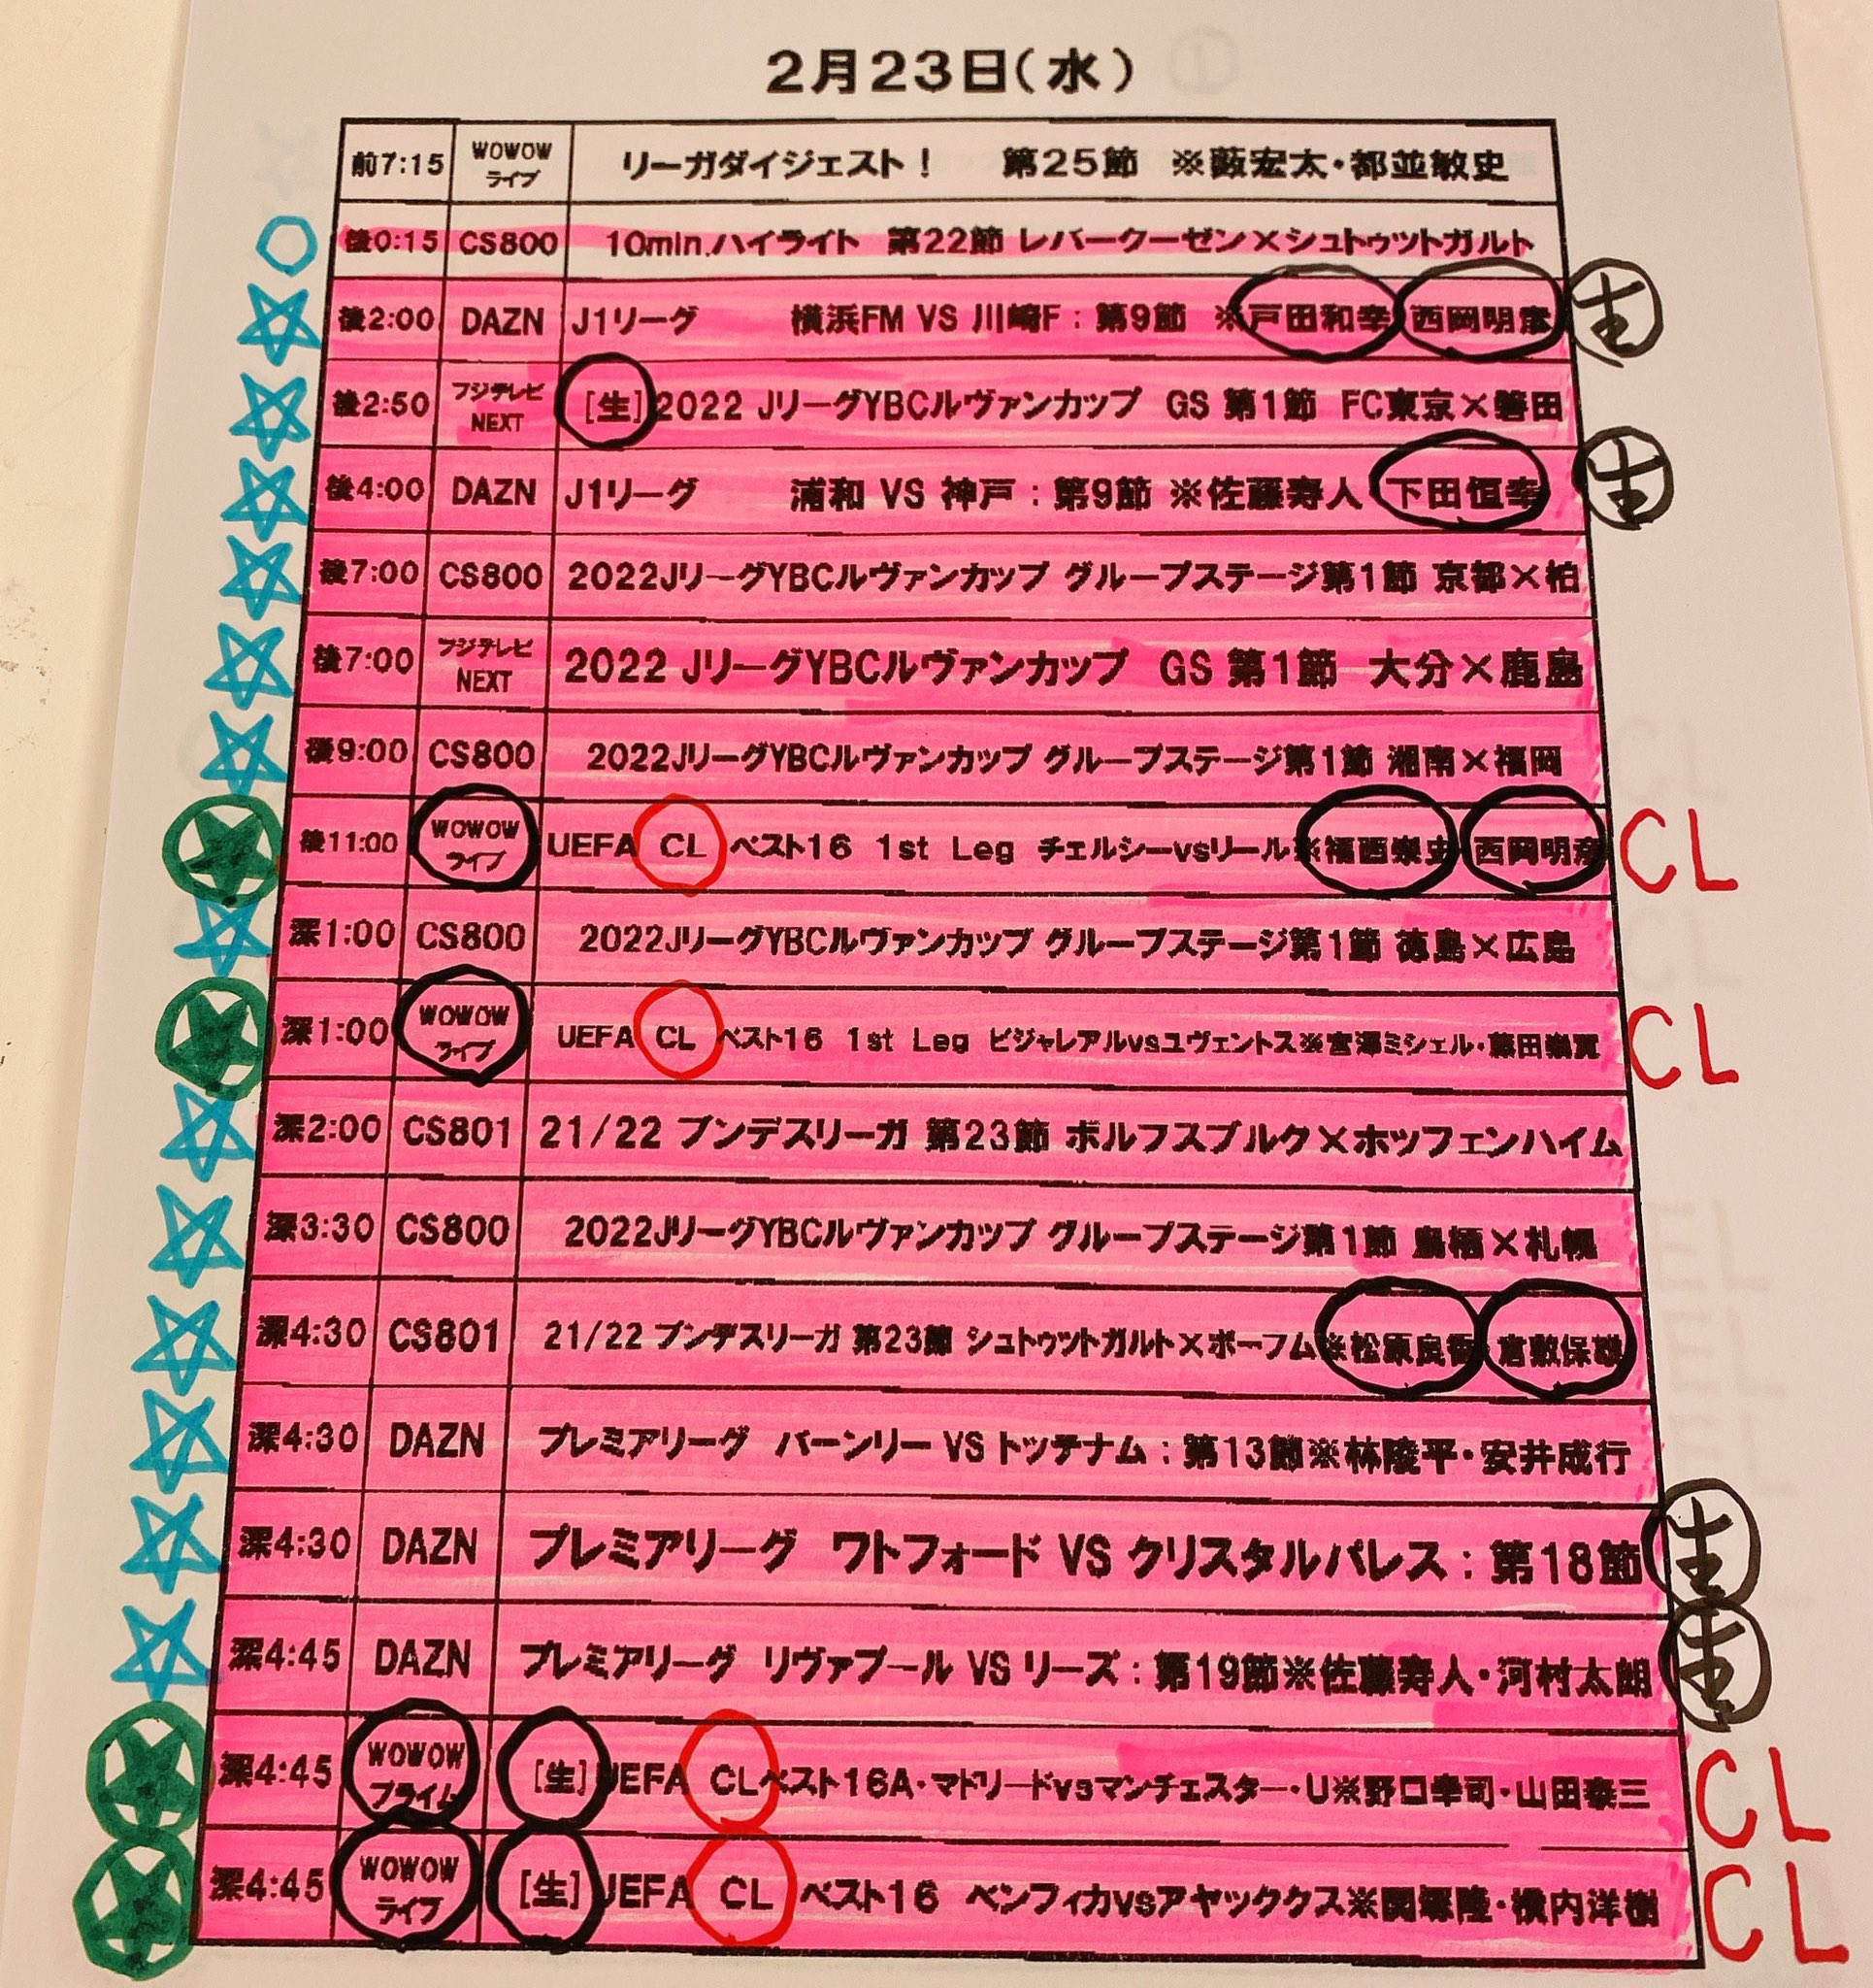 2月23日(水)
前7:15 WOWOW ライブ リーガダイジェスト! 第25節 ※藪宏太・都並敏史
後0:15 CS800 10min.ハイライト 第22節 レバークーゼン×シュトゥットガルト
後2:00 DAZN J1リーグ 横浜FM VS 川崎F:第9節 ※戸田和幸 西岡明彦 生
後2:50 フジテレビ NEXT [生]2022 JリーグYBCルヴァンカップ GS 第1節 FC東京×磐田
後4:00 DAZN J1リーグ 浦和 VS 神戸:第9節 ※佐藤寿人 下田恒幸 生
後7:00 CS800 2022JリーグYBCルヴァンカップ グループステージ第1節 京都×柏
後7:00 フジテレビ NEXT 2022 JリーグYBCルヴァンカップ GS 第1節 大分×鹿島
後9:00 CS800 2022JリーグYBCルヴァンカップ グループステージ第1節 湘南×福岡
後11:00 WOWOW ライブ UEFA CL ベスト16 1st Leg チェルシーvsリール※福西崇史 西岡明彦 CL
深1:00 CS800 2022JリーグYBCルヴァンカップ グループステージ第1節 徳島×広島
深1:00 WOWOW ライブ UEFA CL ベスト16 1st Leg ビジャレアルvsユヴェントス※宮澤ミシェル・藤田崇寛 CL
深2:00 CS801 21/22 ブンデスリーガ 第23節 ボルフスブルク×ホッフェンハイム
深3:30 CS800 2022JリーグYBCルヴァンカップ グループステージ第1節 鳥栖×札幌
深4:30 CS801 21/22 ブンデスリーガ 第23節 シュトゥットガルト×ボーフム※松原良香 倉敷保雄
深4:30 DAZN プレミアリーグ バーンリー VS トッテナム:第13節※林陵平・安井成行
深4:30 DAZN プレミアリーグ ワトフォード VS クリスタルパレス:第18節 生
深4:45 DAZN プレミアリーグ リヴァプール VS リーズ:第19節※佐藤寿人・河村太朗 生
深4:45 WOWOW プライム [生]UEFA CLベスト16A・マドリードvsマンチェスター・U※野口幸司・山田泰三 CL
深4:45 WOWOW ライブ [生]UEFA CL ベスト16 ベンフィカvsアヤックス※関塚隆・横内洋樹 CL